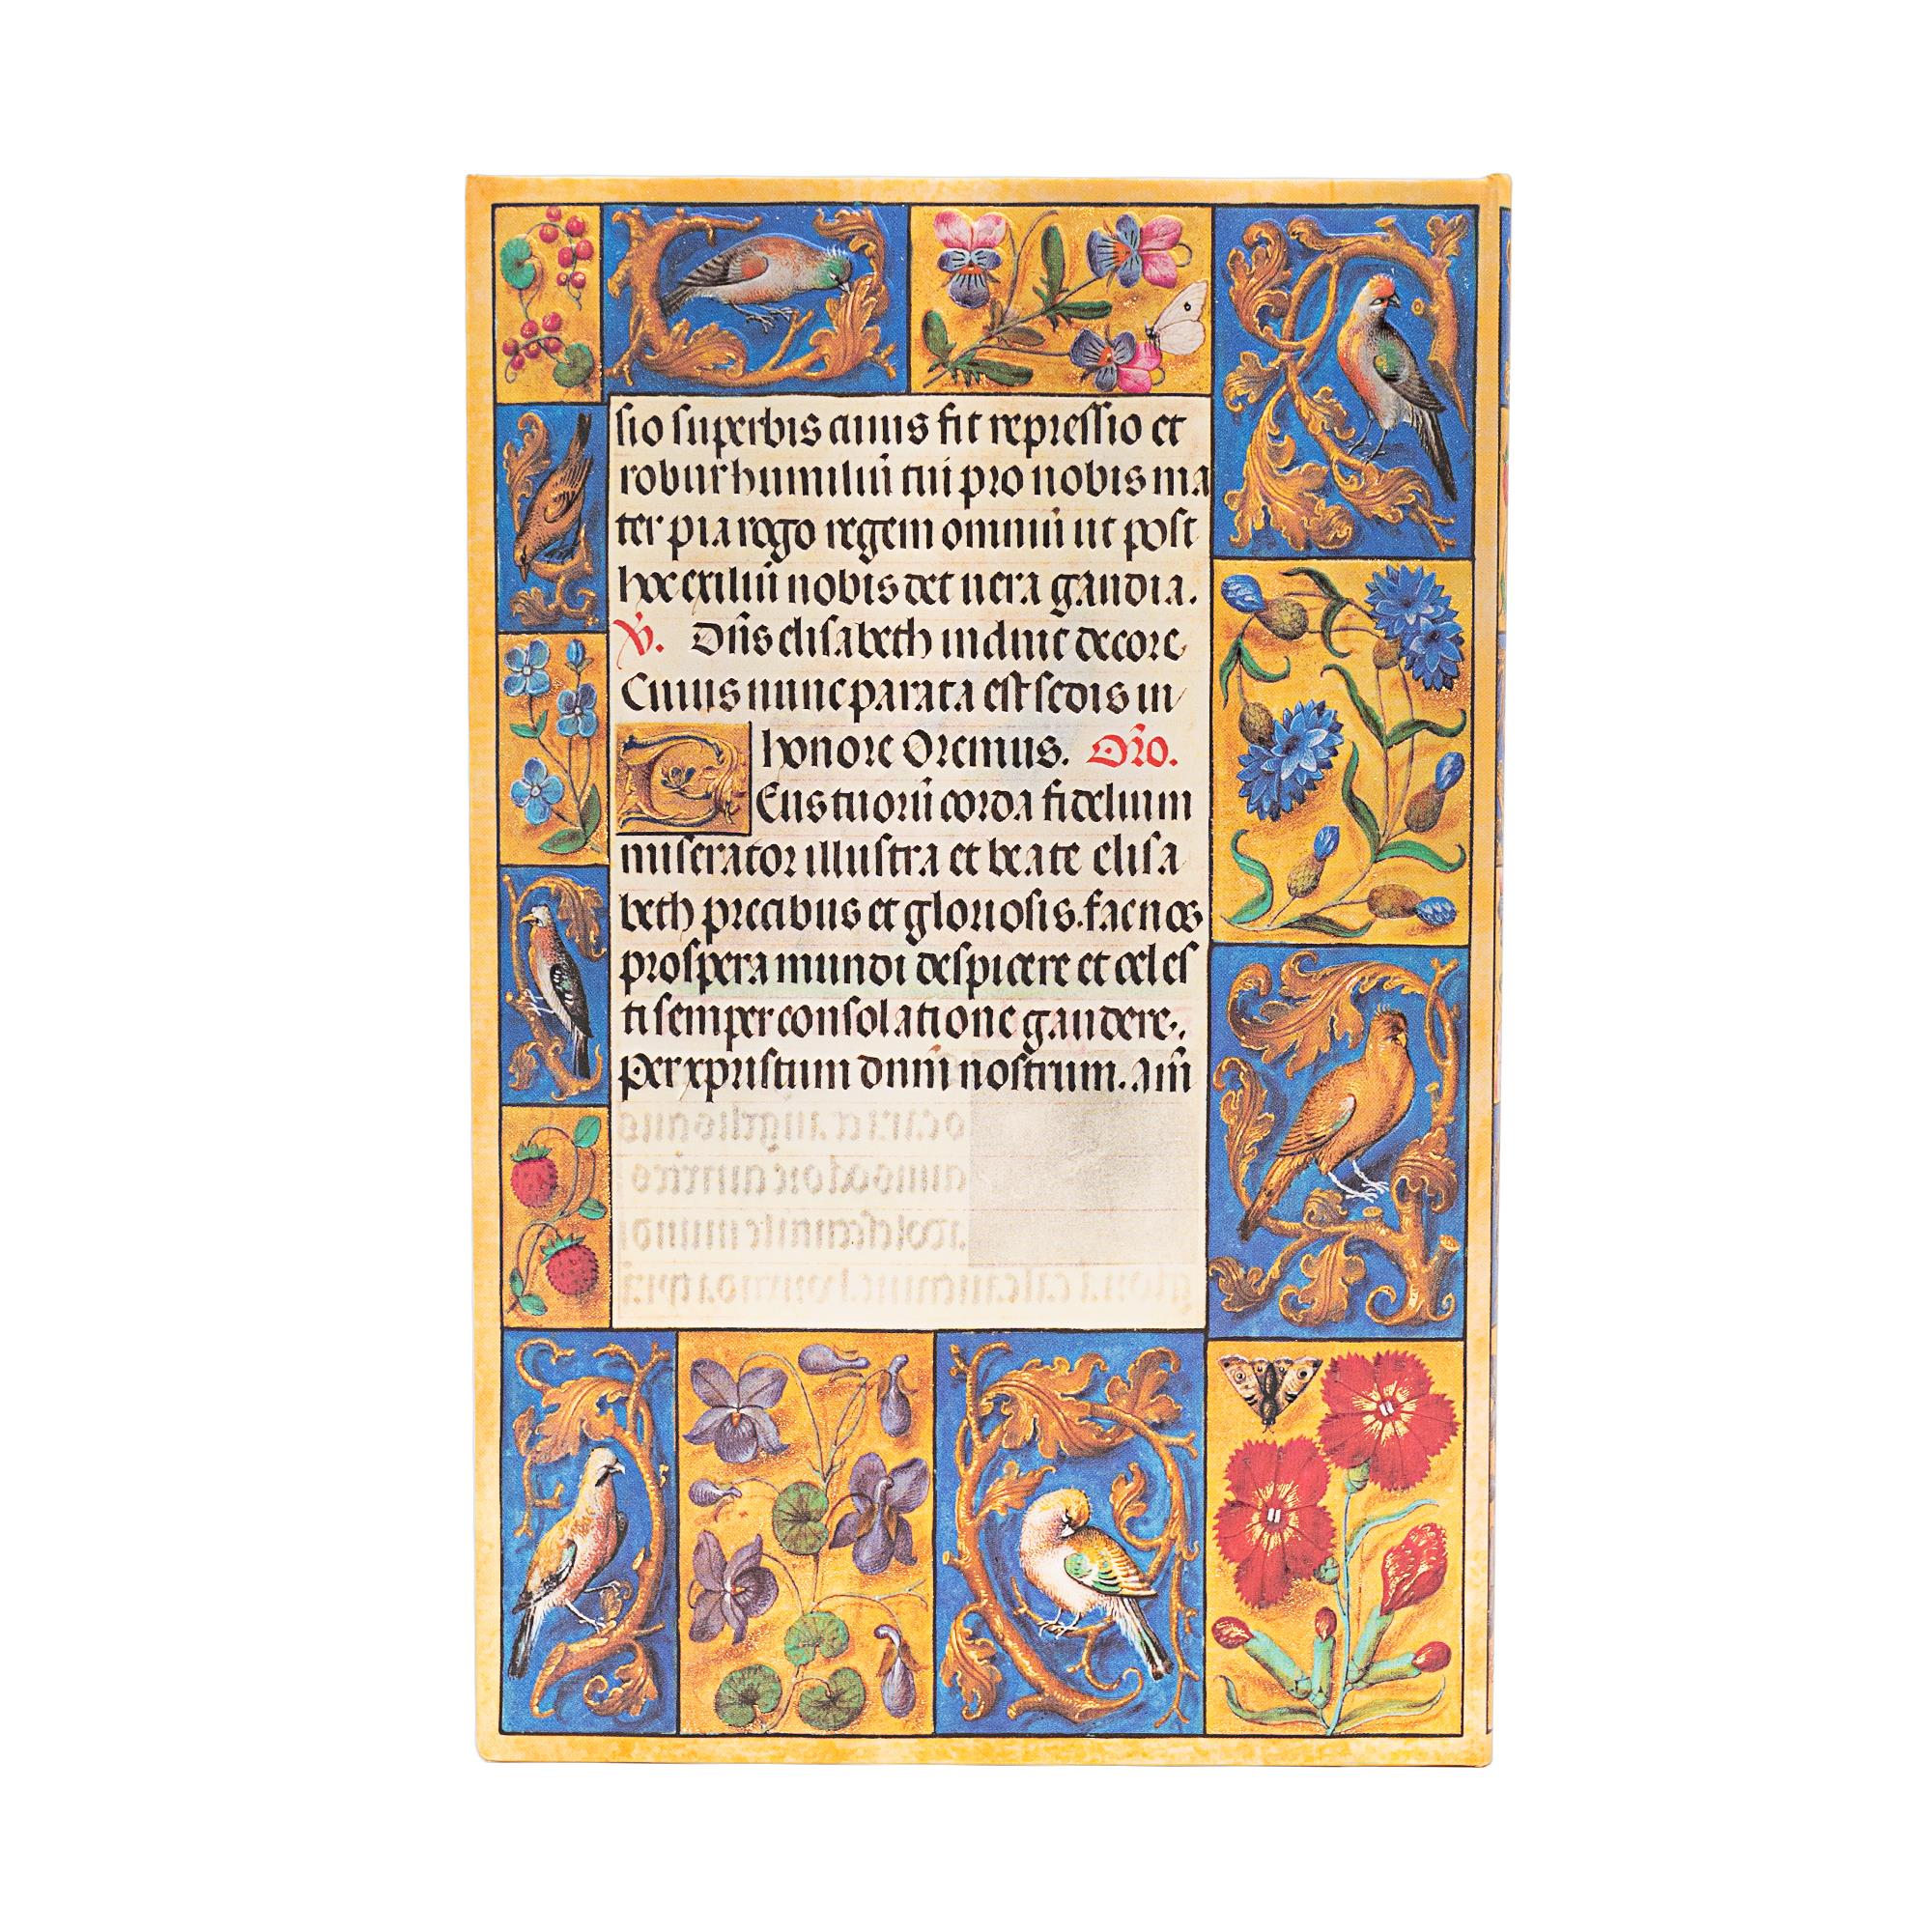 sio superbis cuius fit repressio et
robur humiliū tui pro nobis ma
ter pia rogo regem omniū ut post
hoc exiliū nobis det uera gaudia.
V̄. Dn̄s elisabeth induit decore
Cuius nunc parata est sedis in
honore Oremus. Or̄o.
DEus tuorū corda fidelium
miserator illustra et beate elisa
beth precibus et gloriosis. fac nos
prospera mundi despicere et celes
ti semper consolatione gaudere.
Per xpristum dnm̄ nostrum. am̄